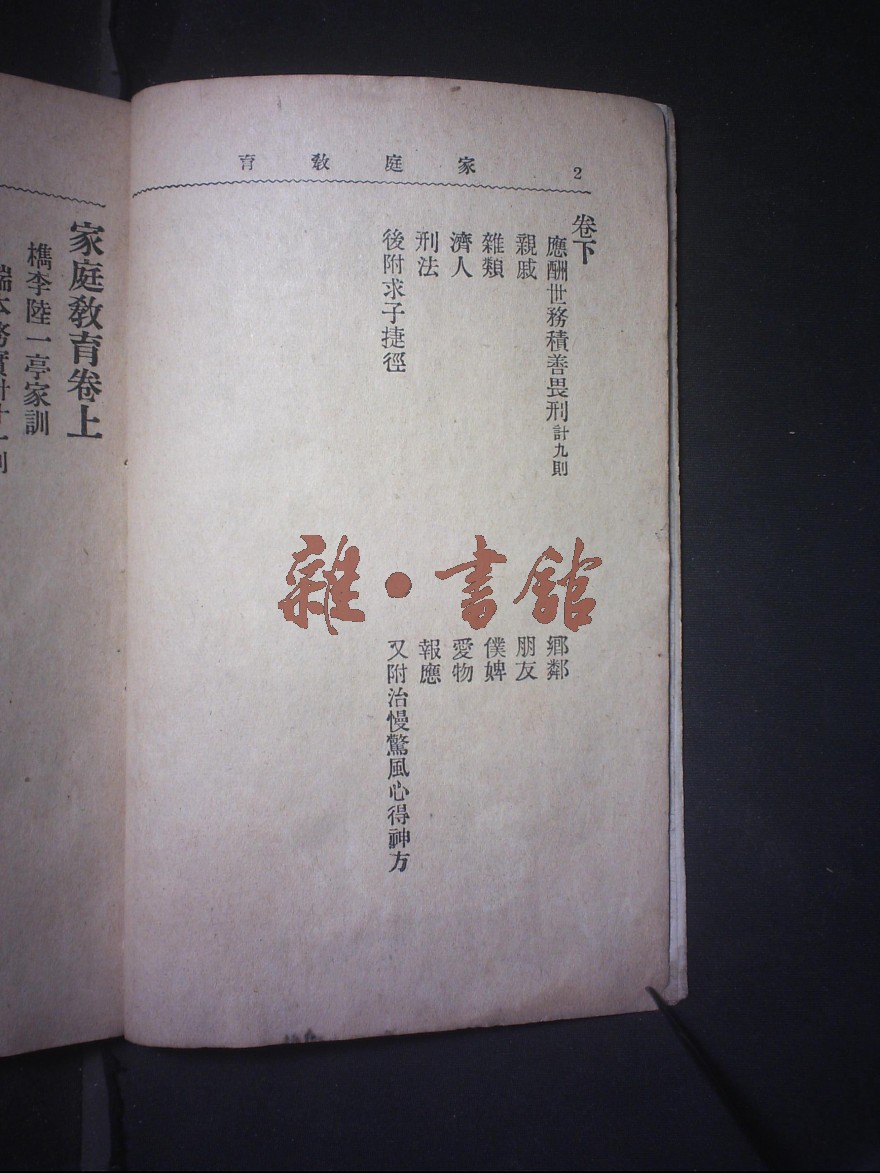 家庭教育
2
卷下
應酬世務積善畏刑計九則
鄉鄰
親戚
朋友
雜類
僕婢
濟人
愛物
刑法
報應
後附求子捷徑
又附治慢驚風心得神方
雜·書館
家庭教育卷上
檇李陸一亭家訓